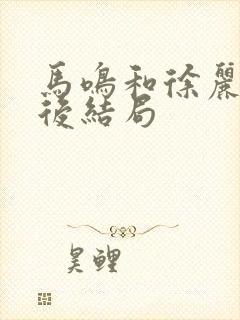 馬鳴和徐麗
後結局
昊鯉